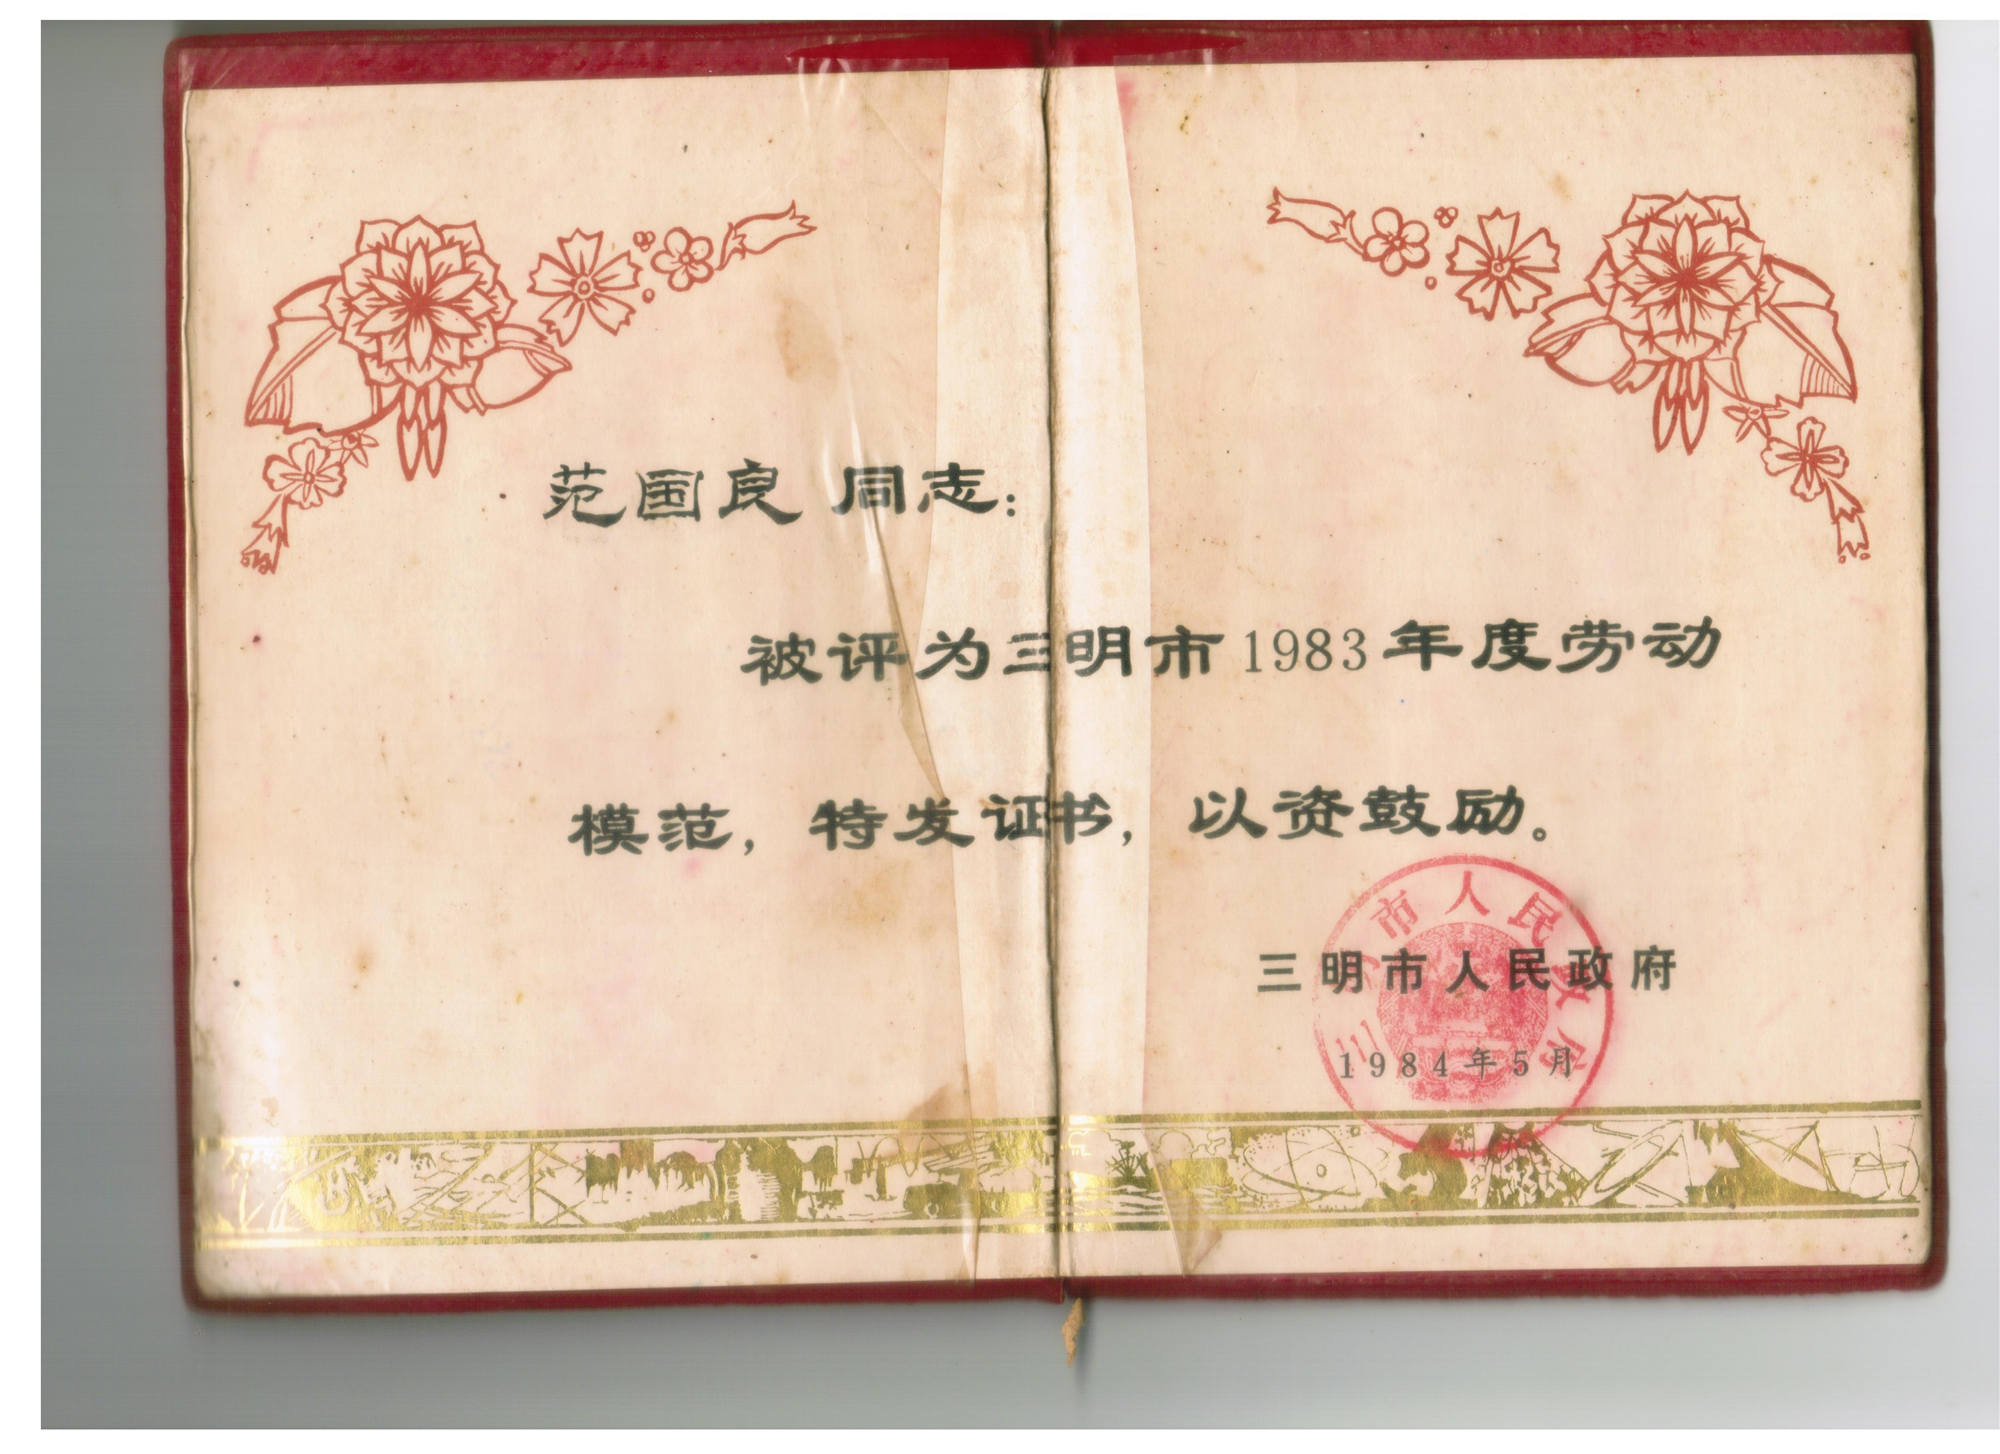 范国良 同志：
被评为三明市1983年度劳动
模范，特发证书，以资鼓励。
三明市人民政府
1984年5月
三明市人民政府